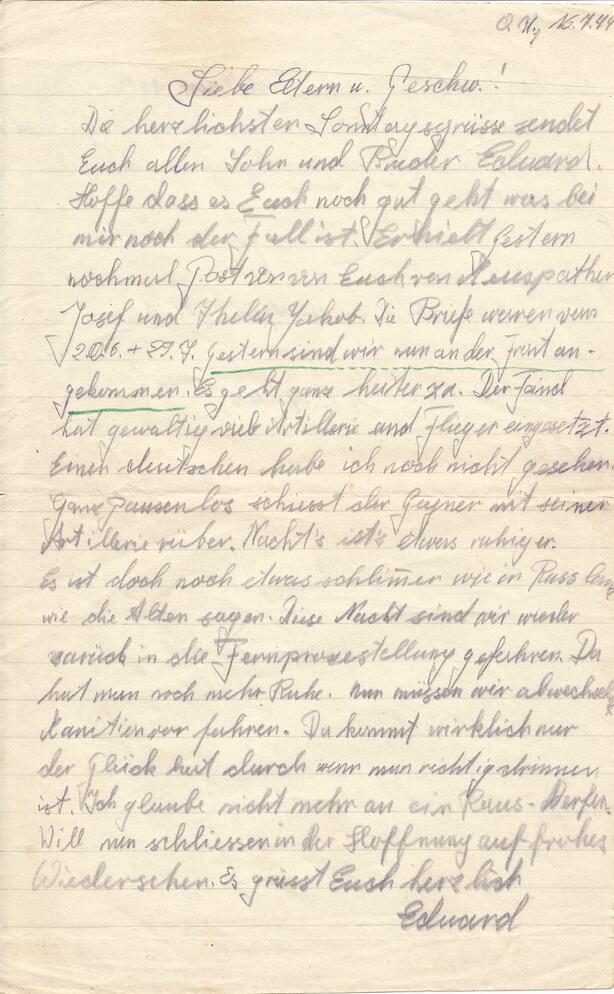 O.U., 16.7.44
Liebe Eltern u. Geschw.!
Die herzlichsten Sonntagsgrüsse sendet
Euch allen Sohn und Bruder Eduard.
Hoffe dass es Euch noch gut geht was bei
mir noch der Fall ist. Erhielt gestern
nochmal Post von Euch von
Josef und Jakob. Die Briefe waren vom
20.6. + 29.7. Gestern sind wir nun an der Front an-
gekommen. Es geht ganz heiter zu. Der Feind
hat gewaltig viele Artillerie und Flieger eingesetzt.
Einen deutschen habe ich noch nicht gesehen.
Ganz pausenlos schiesst der Gegner mit seiner
Artillerie rüber. Nacht's ist's etwas ruhiger.
Es ist doch noch etwas schlimmer wie in Russland
wie die Alten sagen. Diese Nacht sind wir wieder
zurück in die gefahren. Da
hat man noch mehr Ruhe. Nun müssen wir abwechseln
vor fahren. Da kommt wirklich nur
der Glück hat durch wenn man richtig drinnen
ist. Ich glaube nicht mehr an ein Raus-
Will nun schliessen in der Hoffnung auf frohes
Wiedersehen. Es grüsst Euch herzlich
Eduard